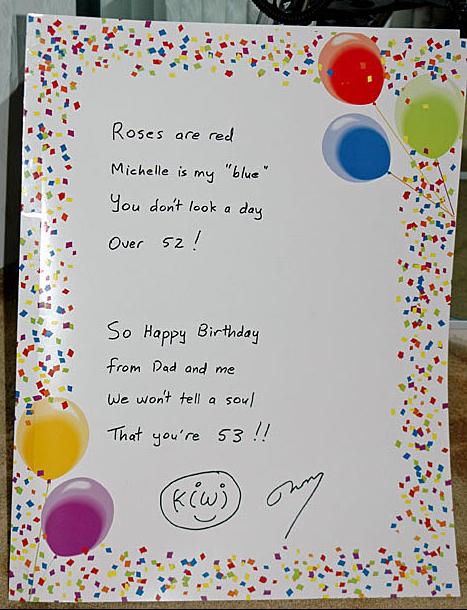 Roses are red
Michelle is my "blue"
You don't look a day
Over 52!
So Happy Birthday
from Dad and me
We won't tell a soul
That you're 53!!
Kiwi